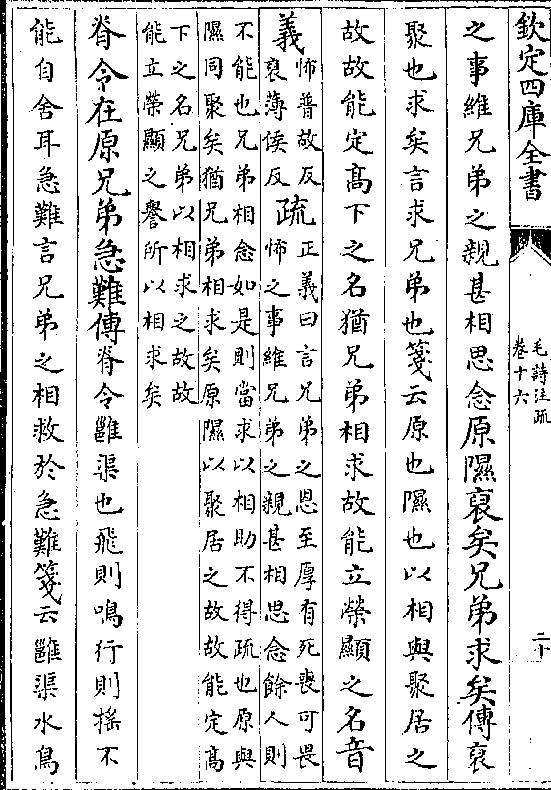 欽定四庫全書
毛詩注疏
卷十六
二十
之事維兄弟之親甚相思念原隰裒矣兄弟求矣傳裒
聚也求矣言求兄弟也箋云原也隰也以相與聚居之
故故能定高下之名猶兄弟相求故能立榮顯之名音
義怖普故反
裒薄侯反
疏正義曰言兄弟之恩至厚有死喪可畏
怖之事維兄弟之親甚相思念餘人則
不能也兄弟相念如是則當求以相助不得疏也原與
隰同聚矣猶兄弟相求矣原隰以聚居之故故能定高
下之名兄弟以相求之故故
能立榮顯之譽所以相求矣
脊令在原兄弟急難傳脊令雝渠也飛則鳴行則搖不
能自舍耳急難言兄弟之相救於急難箋云雝渠水鳥